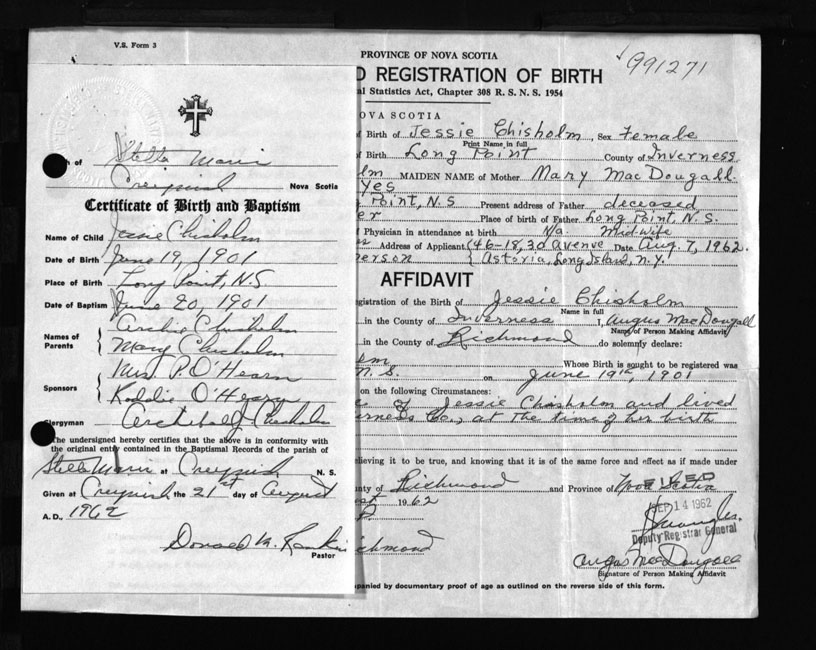 V.S. Form 3
of Stella Maris
Creignish Nova Scotia
Certificate of Birth and Baptism
Name of Child Jessie Chisholm
Date of Birth June 19, 1901
Place of Birth Long Point, N.S.
Date of Baptism June 20, 1901
Names of Parents Archie Chisholm
Mary Chisholm
Sponsors Mrs. P. O'Hearn
O'Hearn
Clergyman Archibald J Chisholm
The undersigned hereby certifies that the above is in conformity with
the original entry contained in the Baptismal Records of the parish of
Stella Maris at Creignish N. S.
Given at Creignish the 21st day of August
A.D., 1962
Donald M. Rankin
Pastor
PROVINCE OF NOVA SCOTIA
991271
D REGISTRATION OF BIRTH
al Statistics Act, Chapter 308 R. S. N. S. 1954
NOVA SCOTIA
of Birth of Jessie Chisholm, Sex Female
Print Name in full
of Birth Long Point County of Inverness
lm MAIDEN NAME of Mother Mary MacDougall
Yes
Point, N.S Present address of Father deceased
er Place of birth of Father Long Point, N.S.
of Physician in attendance at birth N/a. Midwife
Address of Applicant (46-18, 30 Avenue Date Aug. 7, 1962.
erson Astoria, Long Island, N.Y.
AFFIDAVIT
egistration of the Birth of Jessie Chisholm
Name in full
in the County of Inverness I, Angus MacDougall
Name of Person Making Affidavit
in the County of Richmond do solemnly declare:
Whose Birth is sought to be registered was
N.S. on June 19th, 1901
on the following Circumstances:
of Jessie Chisholm and lived
erness Co., at the time of her birth
elieving it to be true, and knowing that it is of the same force and effect as if made under
nty of Richmond and Province of Nova Scotia
1962
SEP 14 1962
Deputy Registrar General
chmond
Angus MacDougall
Signature of Person Making Affidavit
panied by documentary proof of age as outlined on the reverse side of this form.